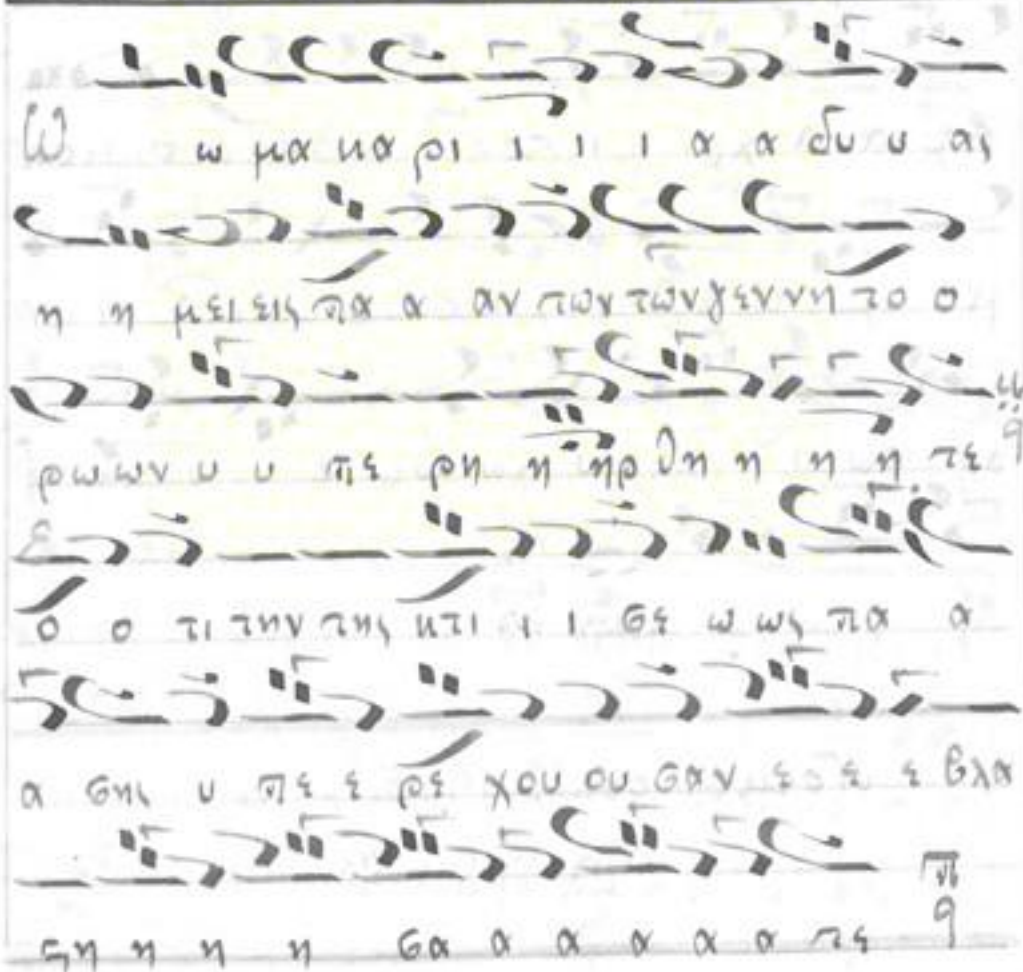 Ω ω μα κα ρι ι ι ι α α δυ υ ας
η η μει εις πα α αν των των γεν νη το ο
ρω ων υ υ πε ρη η ηρ θη η η η τε
ο ο τι την της κτι ι ι σε ω ως πα α
α σης υ πε ε ρε χου ου σαν ε ε ε βλα
στη η η η σα α α α α α τε